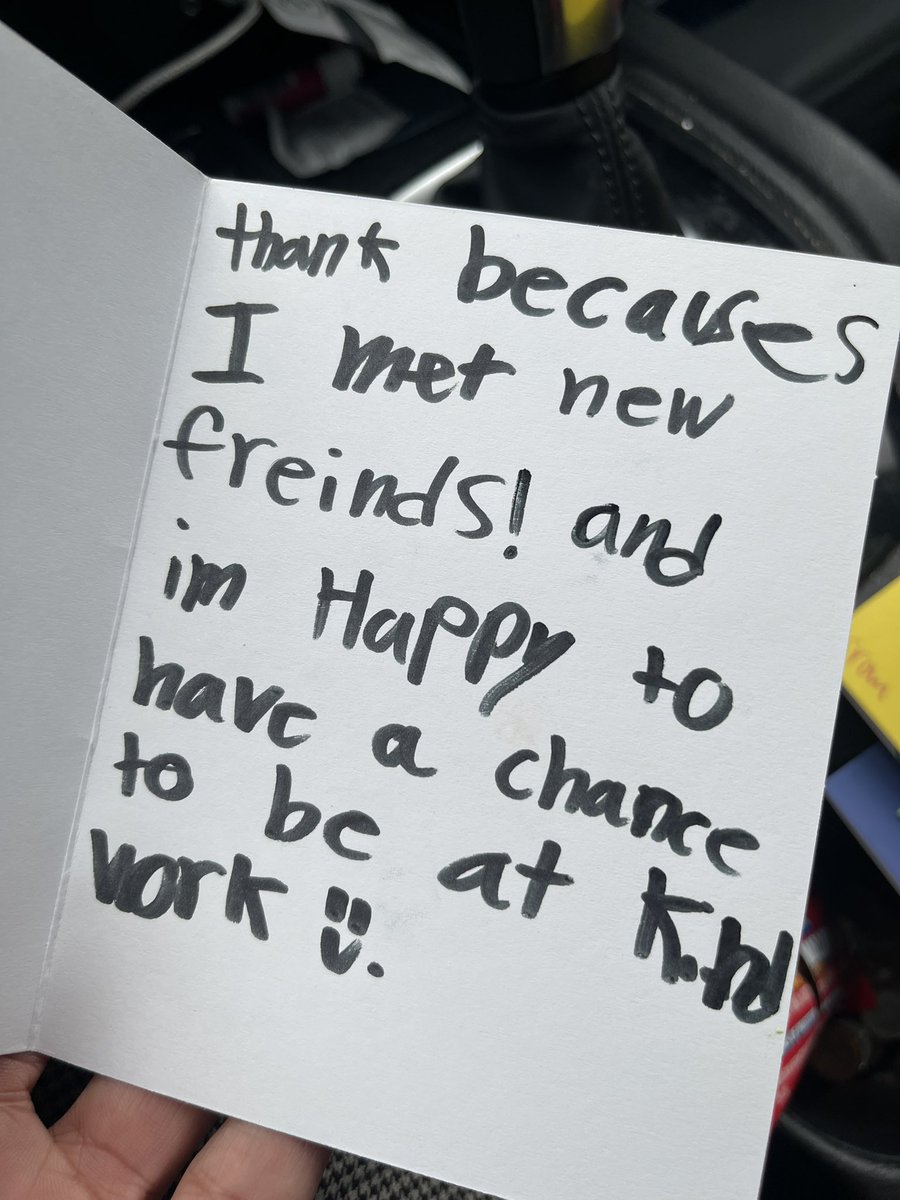 thank becauses
I met new
freinds! and
im Happy to
have a chance
to be at Kind
work